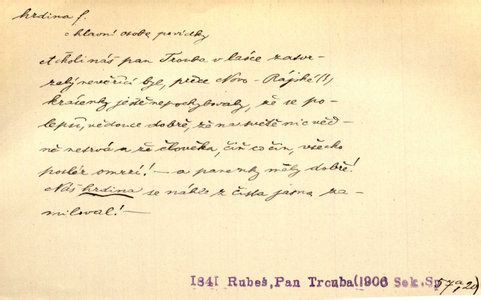 hrdina f.
○ hlavní osoba povídky
Ačkoli náš pan Trouba v lásce zatvr-
zelý nevěřící byl, přece Novo-Rájské (!)
krásenky ještě nepochybovaly, že se po-
lepší, vědouce dobře, že na světě nic věč-
ně netrvá a že člověka, čiň co čiň, všecko
posléz omrzí! — a panenky měly dobře!
Náš hrdina se náhle z čista jasna za-
miloval! —
1841 Rubeš, Pan Trouba (1906 Seb. Sp